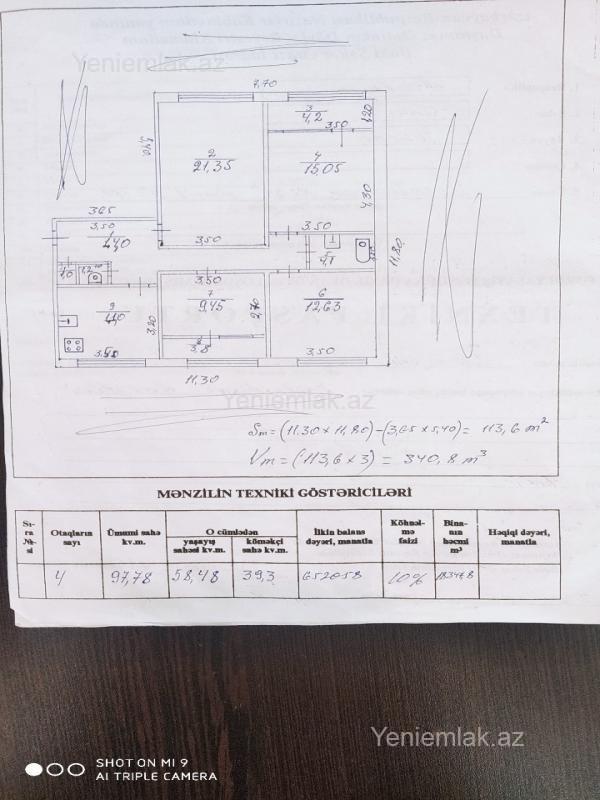 Yeniemlak.az
7,70
3
4,2
1,20
3,50
2
21,35
4
15,05
4,30
3,65
3,50
3,50
3,50
11,80
3,50
7
9,45
2,70
6
12,63
9
3,20
3,8
3,50
11,30
Yeniemlak.az
Sm = (11.30 x 11,80) - (3,65 x 5,40) = 113,6 m²
Vm = (113,6 x 3) = 340,8 m³
MƏNZİLİN TEXNİKİ GÖSTƏRİCİLƏRİ
Sı-ra №-si
Otaqların sayı
Ümumi sahə kv.m.
O cümlədən
yaşayış sahəsi kv.m.
köməkçi sahə kv.m.
İlkin balans dəyəri, manatla
Köhnəl-mə faizi
Bina-nın həcmi m³
Həqiqi dəyəri, manatla
4 97,78 58,48 39,3 652058 10%
Yeniemlak.az
SHOT ON MI 9
AI TRIPLE CAMERA